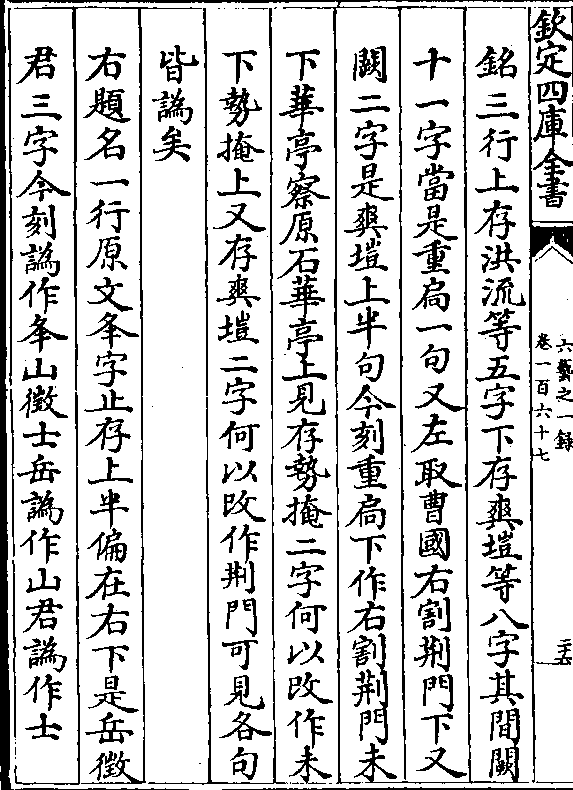 欽定四庫全書
六藝之一錄
卷一百六十七
銘三行上存洪流等五字下存爽塏等八字其間闕
十一字當是重扃一句又左取曹國右割荆門下又
闕二字是爽塏上半句今刻重扃下作右割荆門未
下華亭察原石華亭上見存勢掩二字何以改作未
下勢掩上又存爽塏二字何以改作荆門可見各句
皆譌矣
右題名一行原文夆字止存上半偏在右下是岳徵
君三字今刻譌作夆山徵士岳譌作山君譌作士